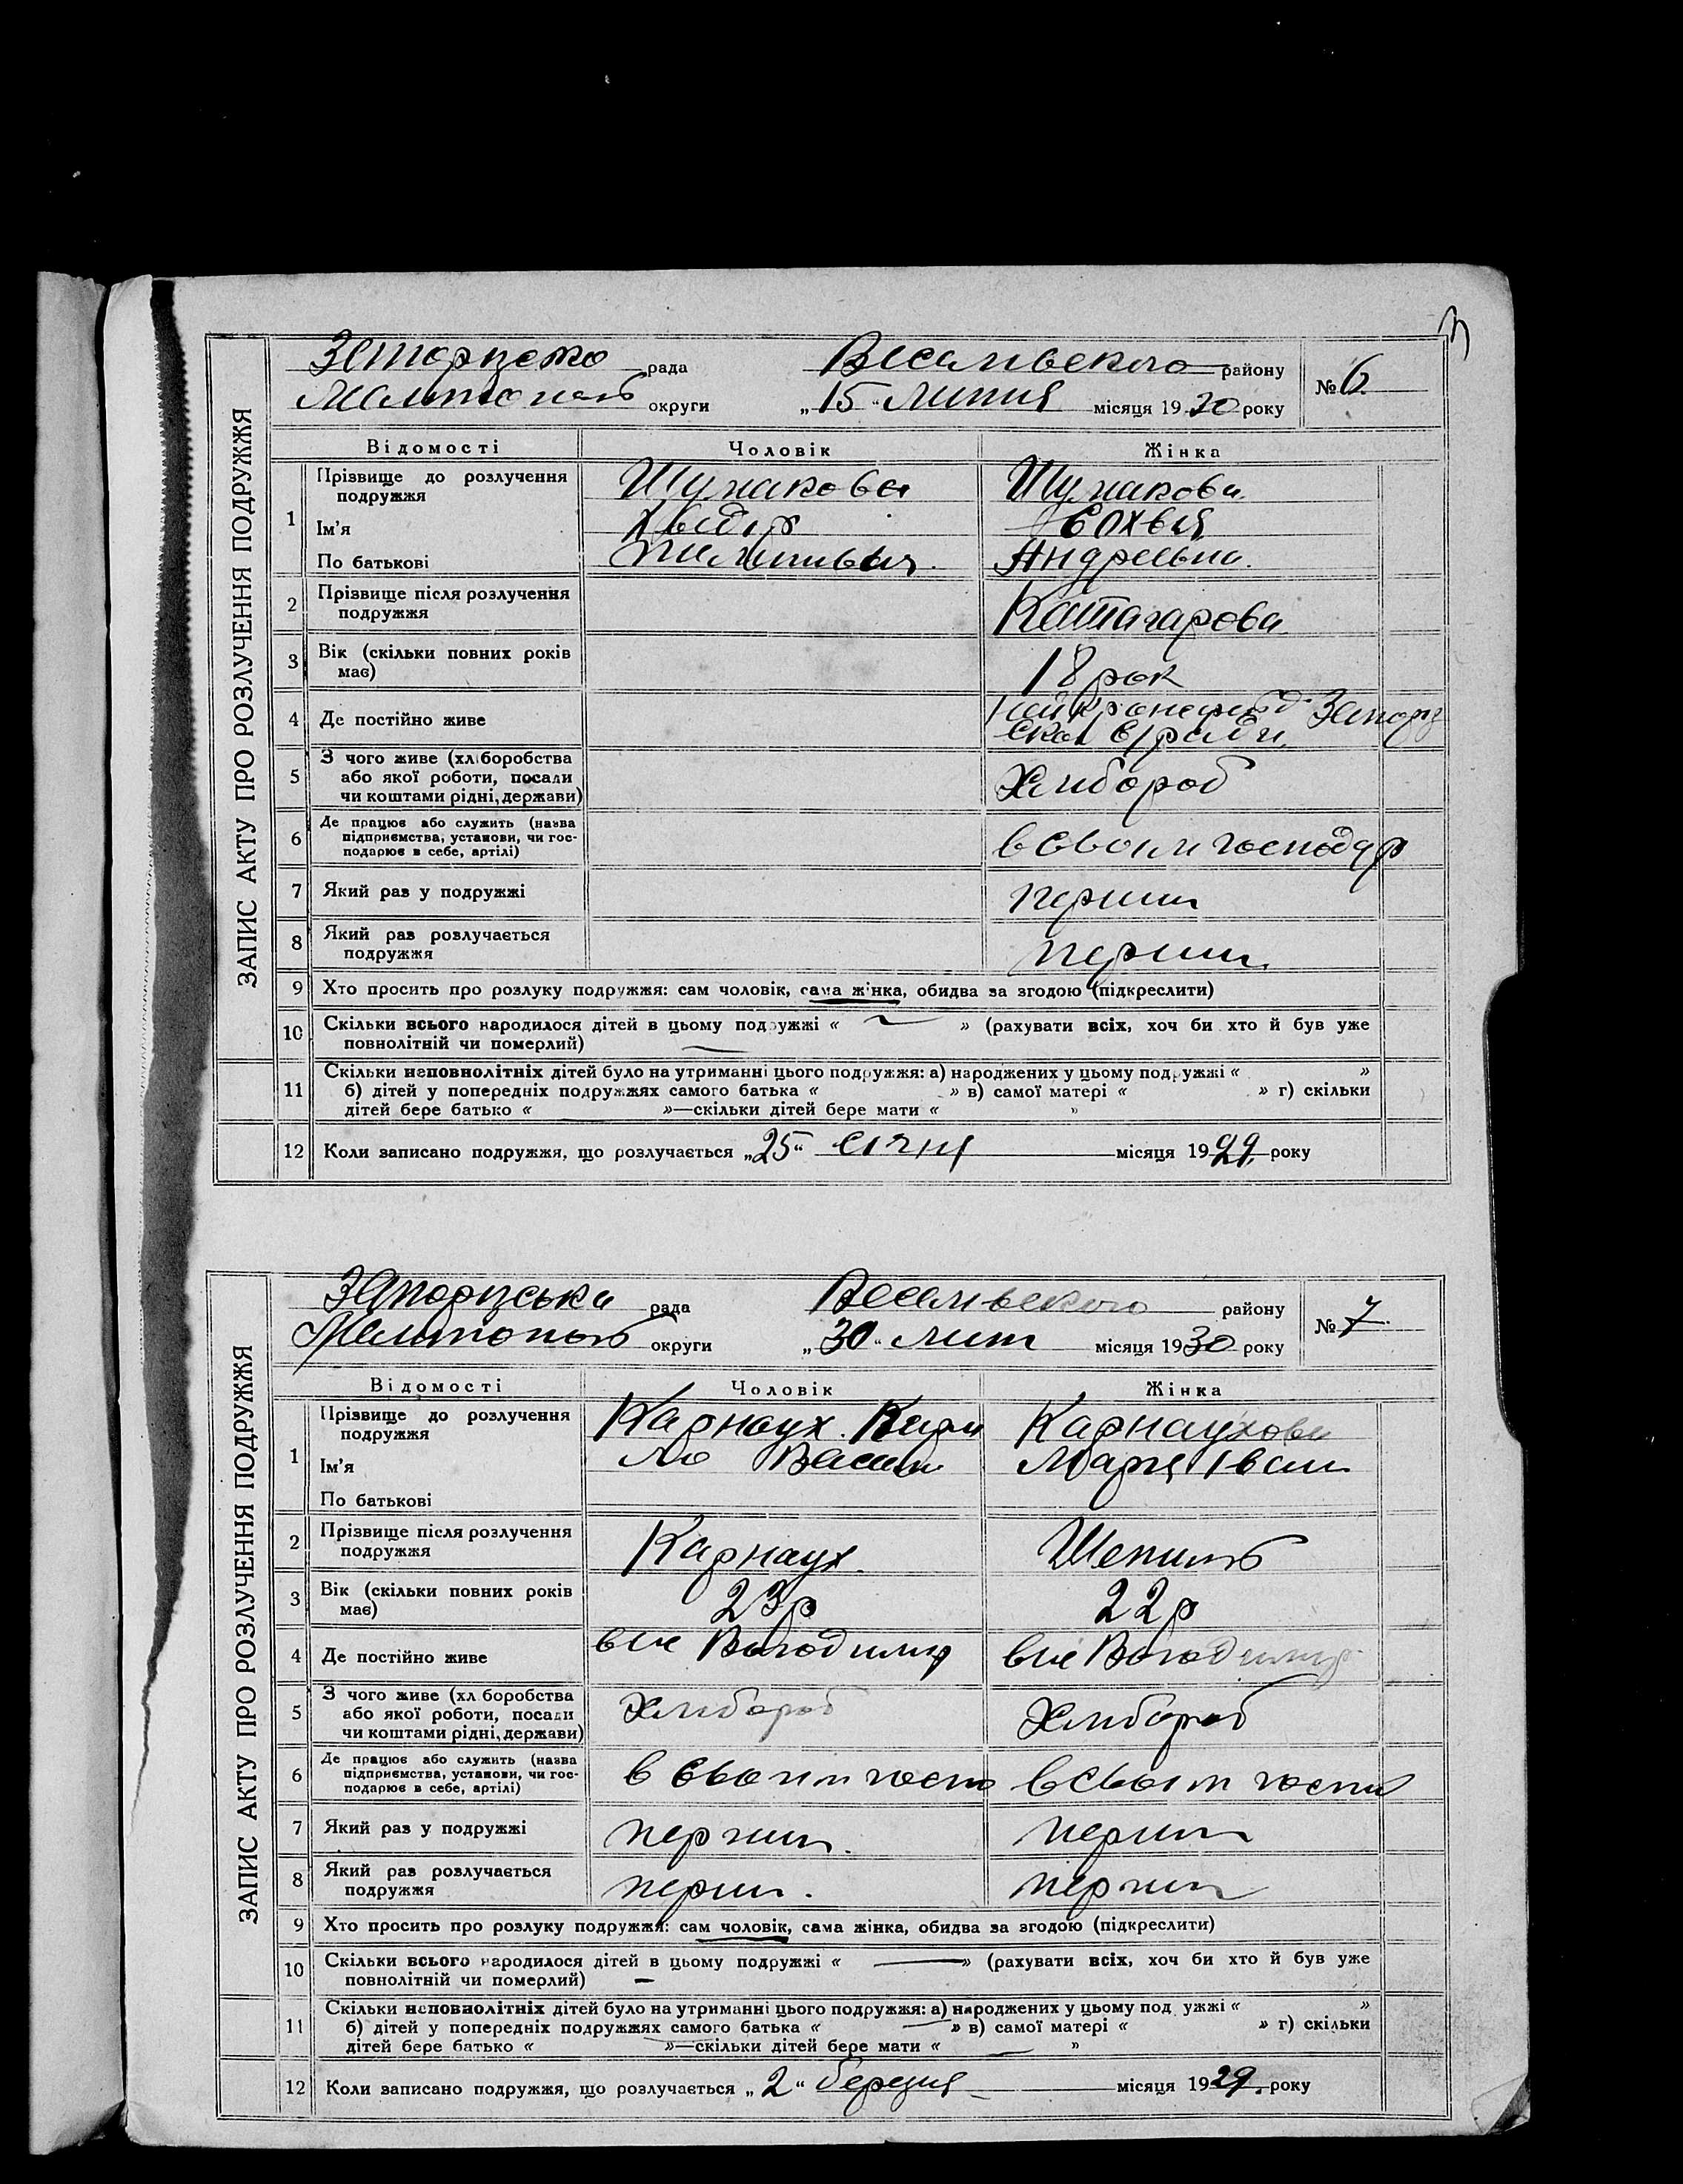 Запорізско рада Веселівского району № 6
Мелитополь округи „15“ Липня місяця 1930 року
ЗАПИС АКТУ ПРО РОЗЛУЧЕННЯ ПОДРУЖЖЯ
Відомості Чоловік Жінка
1 Прізвище до розлучення подружжя Шумакова Шумакова
Ім'я Хведір Сохвія
По батькові Андреевна.
2 Прізвище після розлучення
подружжя
3 Вік (скільки повних років 18 рок
має)
4 Де постійно живе Запорі
5 З чого живе (хліборобства Хлибороб
або якої роботи, посади
чи коштами рідні, держави)
6 Де працює або служить (назва в своім господар
підприємства, установи, чи гос-
подарює в себе, артілі)
7 Який раз у подружжі перши
8 Який раз розлучається перши
подружжя
9 Хто просить про розлуку подружжя: сам чоловік, сама жінка, обидва за згодою (підкреслити)
10 Скільки всього народилося дітей в цьому подружжі « — » (рахувати всіх, хоч би хто й був уже
повнолітній чи померлий) —
11 Скільки неповнолітніх дітей було на утриманні цього подружжя: а) народжених у цьому подружжі « »
б) дітей у попередніх подружжях самого батька « » в) самої матері « » г) скільки
дітей бере батько « »—скільки дітей бере мати « »
12 Коли записано подружжя, що розлучається „25“ січня місяця 1929. року
Запорізська рада Веселівского району № 7
Мелитополь округи „30“ лип місяця 1930 року
ЗАПИС АКТУ ПРО РОЗЛУЧЕННЯ ПОДРУЖЖЯ
Відомості Чоловік Жінка
1 Прізвище до розлучення Карнаух. Кири Карнаухова
подружжя
Ім'я ло Васил Марія Іван
По батькові
2 Прізвище після розлучення Карнаух. Шепиль
подружжя
3 Вік (скільки повних років 23 р 22 р
має)
4 Де постійно живе Володимир Володимир
5 З чого живе (хліборобства Хлибороб Хлибороб
або якої роботи, посади
чи коштами рідні, держави)
6 Де працює або служить (назва в своим госпо в своім госпо
підприємства, установи, чи гос-
подарює в себе, артілі)
7 Який раз у подружжі перши. перши
8 Який раз розлучається перши. перши
подружжя
9 Хто просить про розлуку подружжя: сам чоловік, сама жінка, обидва за згодою (підкреслити)
10 Скільки всього народилося дітей в цьому подружжі « — » (рахувати всіх, хоч би хто й був уже
повнолітній чи померлий) —
11 Скільки неповнолітніх дітей було на утриманні цього подружжя: а) народжених у цьому подружжі « »
б) дітей у попередніх подружжях самого батька « — » в) самої матері « » г) скільки
дітей бере батько « »—скільки дітей бере мати « — »
12 Коли записано подружжя, що розлучається „2“ березня місяця 1929. року